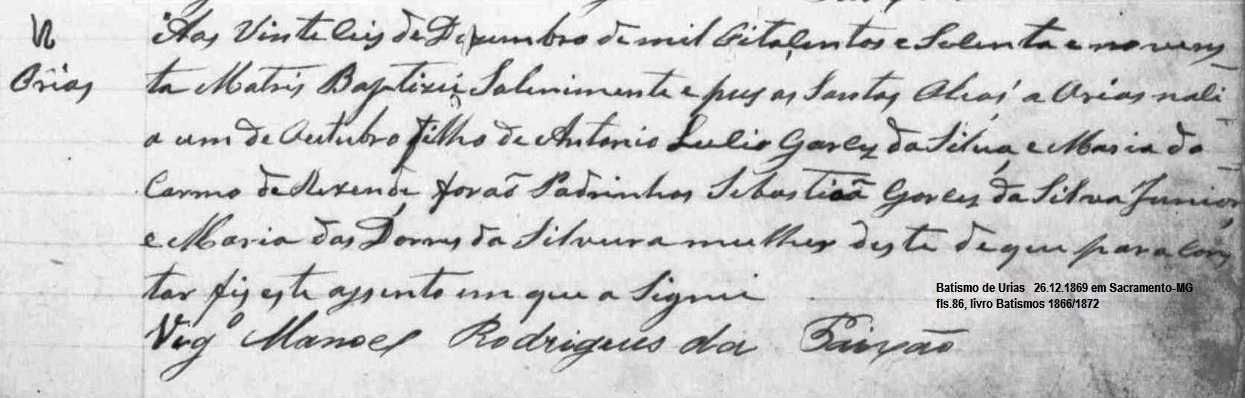 N
Orias
Aos Vinte seis de Dezembro de mil Oitocentos e Secenta e nove nes
ta Matris Baptizei Solenimente e pus os Santos Oleos a Orias nasci
o um de Outubro filho de Antonio Julio Garcez da Silva, e Maria do
Carmo de Rezende, forão Padrinhos Sebastião Garcez da Silva Junior,
e Maria das Dores da Silveira mulher deste de que para cons
tar fis este assento em que a Signei
Vigº Manoel Rodrigues da Paixão
Batismo de Urias 26.12.1869 em Sacramento-MG
fls.86, livro Batismos 1866/1872